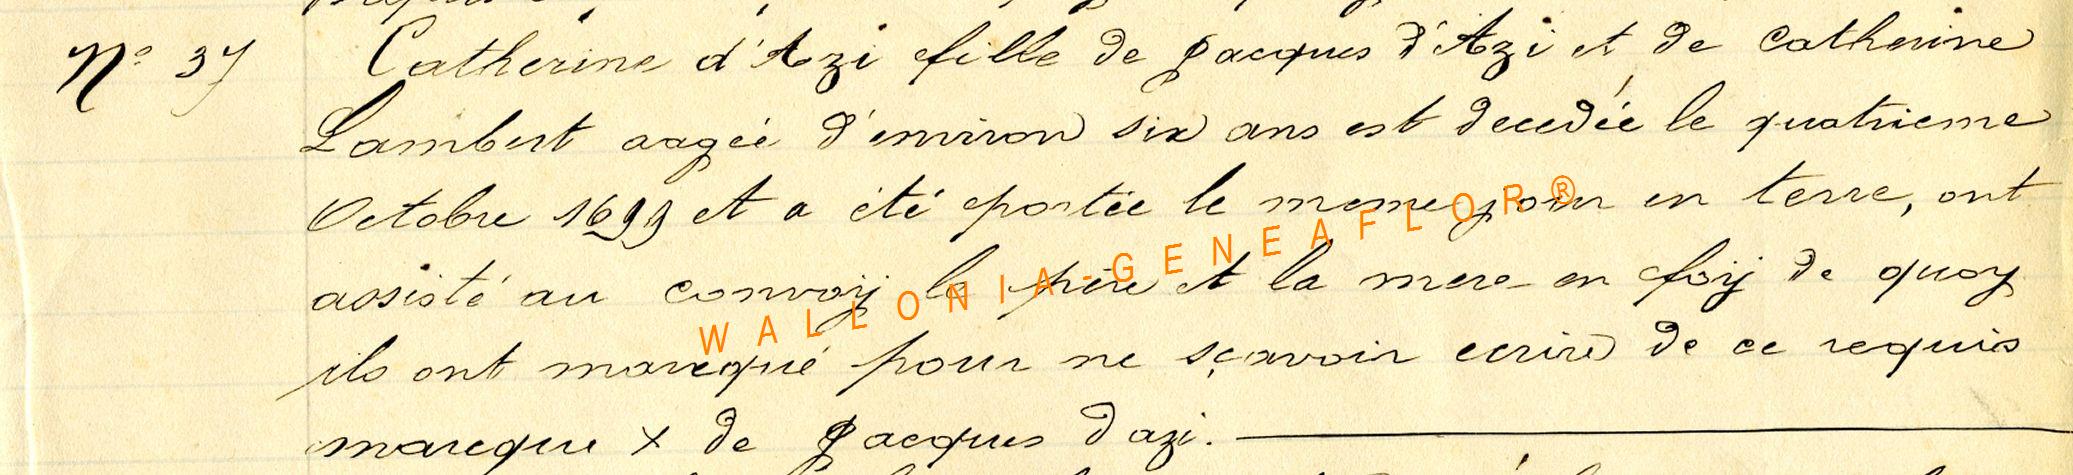 N° 37
Catherine d'Azi fille de Jacques d'Azi et de Catherine
Lambert aagée d'environ six ans est decedée le quatrieme
Octobre 1693 et a été portée le meme jour en terre, ont
assisté au convoij le père et la mere en foij de quoy
ils ont marcqué pour ne sçavoir ecrire de ce requis
marcque x de Jacques Dazi.
WALLONIA-GENEAFLOR®